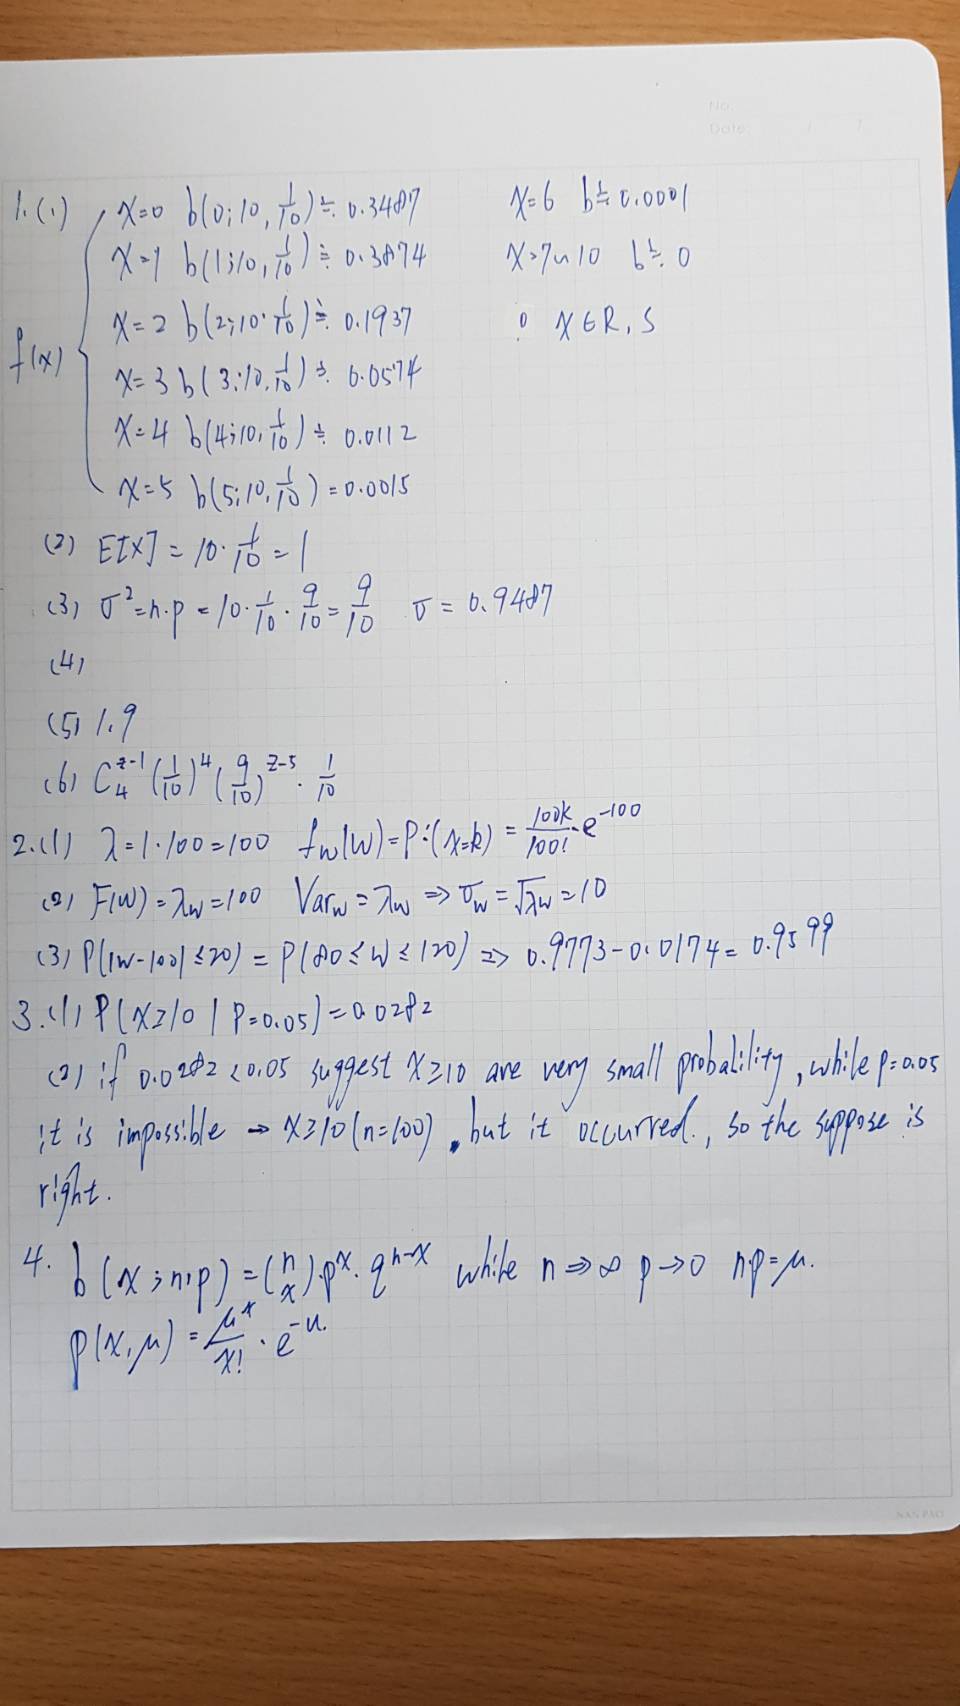 No.
Date: / /
1.(1) x=0 b(0;10,1/10)≒0.3487 x=6 b≒0.0001
x=1 b(1;10,1/10)≒0.3874 x=7~10 b≒0
x=2 b(2;10,1/10)≒0.1937 0 x∈R,S
f(x)
x=3 b(3;10,1/10)≒0.0574
x=4 b(4;10,1/10)≒0.0112
x=5 b(5;10,1/10)=0.0015
(2) E[x]=10·1/10=1
(3) σ²=n·p=10·1/10·9/10=9/10 σ=0.9487
(4)
(5) 1.9
(6) C₄^(z-1)(1/10)⁴(9/10)^(z-5)·1/10
2.(1) λ=1·100=100 fw(w)=P:(x=k)=100k/100!·e^(-100)
(2) F(w)=λw=100 Varw=λw⇒σw=√λw=10
(3) P(|w-100|≤20)=P(80≤w≤120)⇒0.9773-0.0174=0.9599
3.(1) P(x≥10|P=0.05)=0.0282
(2) if 0.0282<0.05 suggest x≥10 are very small probalility, while p=0.05
it is impossible → x≥10(n=100), but it occurred., so the suppose is
right.
4. b(x;n,p)=(n x)·p^x·q^(n-x) while n⇒∞ p→0 n·p=μ.
p(x,μ)=μ^x/x!·e^(-μ)
NAN PAO